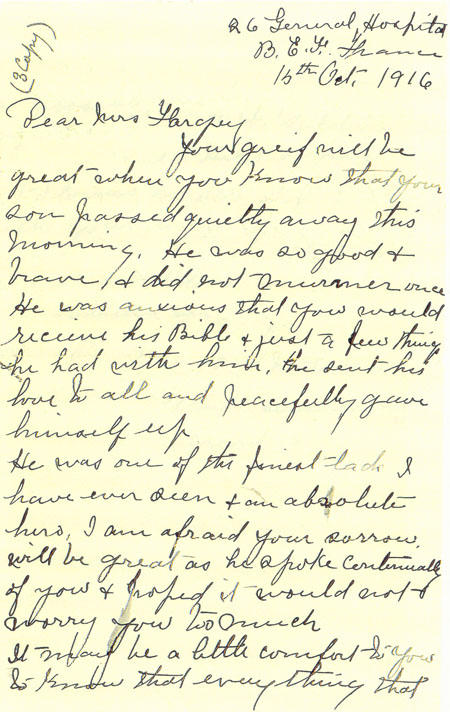 (3 Copy)
26 General Hospital
B. E. F. France
15th Oct. 1916
Dear Mrs
Your greif will be
great when you know that your
son passed quietly away this
morning. He was so good &
brave & did not murmer once
He was anxious that you would
receive his Bible & just a few things
he had with him. He sent his
love to all and peacefully gave
himself up
He was one of the finest lads I
have ever seen & an absolute
hero, I am afraid your sorrow
will be great as he spoke continually
of you & hoped it would not
worry you too much
It may be a little comfort to you
to know that everything that